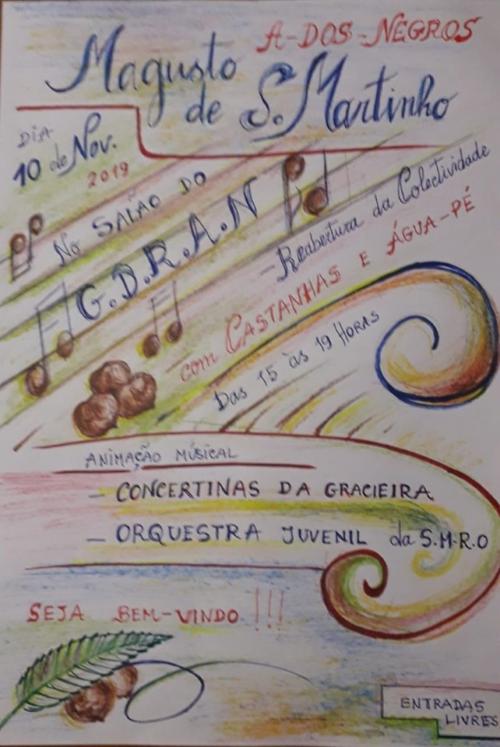 A-DOS-NEGROS
Magusto
de S. Martinho
DIA
10 de Nov.
2019
NO SALÃO DO
G.D.R.A.N
- Reabertura da Colectividade
com CASTANHAS E ÁGUA-PÉ
Das 15 às 19 HORAS
ANIMAÇÃO MÚSICAL
- CONCERTINAS DA GRACIEIRA
- ORQUESTRA JUVENIL da S.M.R.O
SEJA BEM-VINDO!!!
ENTRADAS
LIVRES